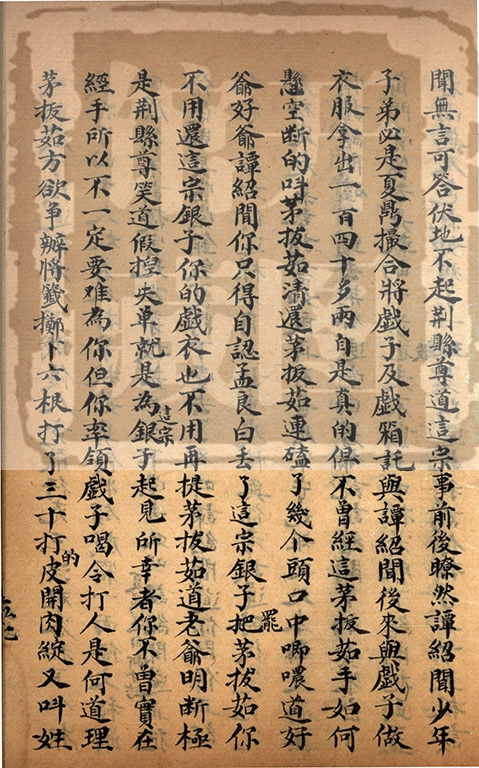 聞無言可答伏地不起荆縣尊道這宗事前後瞭然譚紹聞少年
子弟必是夏鼎撮合將戲子及戲箱託與譚紹聞後來與戲子做
衣服拿出一百四十多兩自是真的俱不曾經這茅拔茹手如何
懸空斷的呌茅拔茹清還茅拔茹連磕了幾个頭口中唧噥道好
爺好爺譚紹聞你只得自認孟良白丢了這宗銀子把茅拔茹你罷
不用還這宗銀子你的戲衣也不用再提茅拔茹道老爺明断極
是荆縣尊笑道假揑央单就是為這宗銀子起見所幸者你不曾實在
經手所以不一定要难為你但你率領戲子喝令打人是何道理
茅拔茹方欲争辦將籤擲下六根打了三十打的皮開肉綻又呌姓